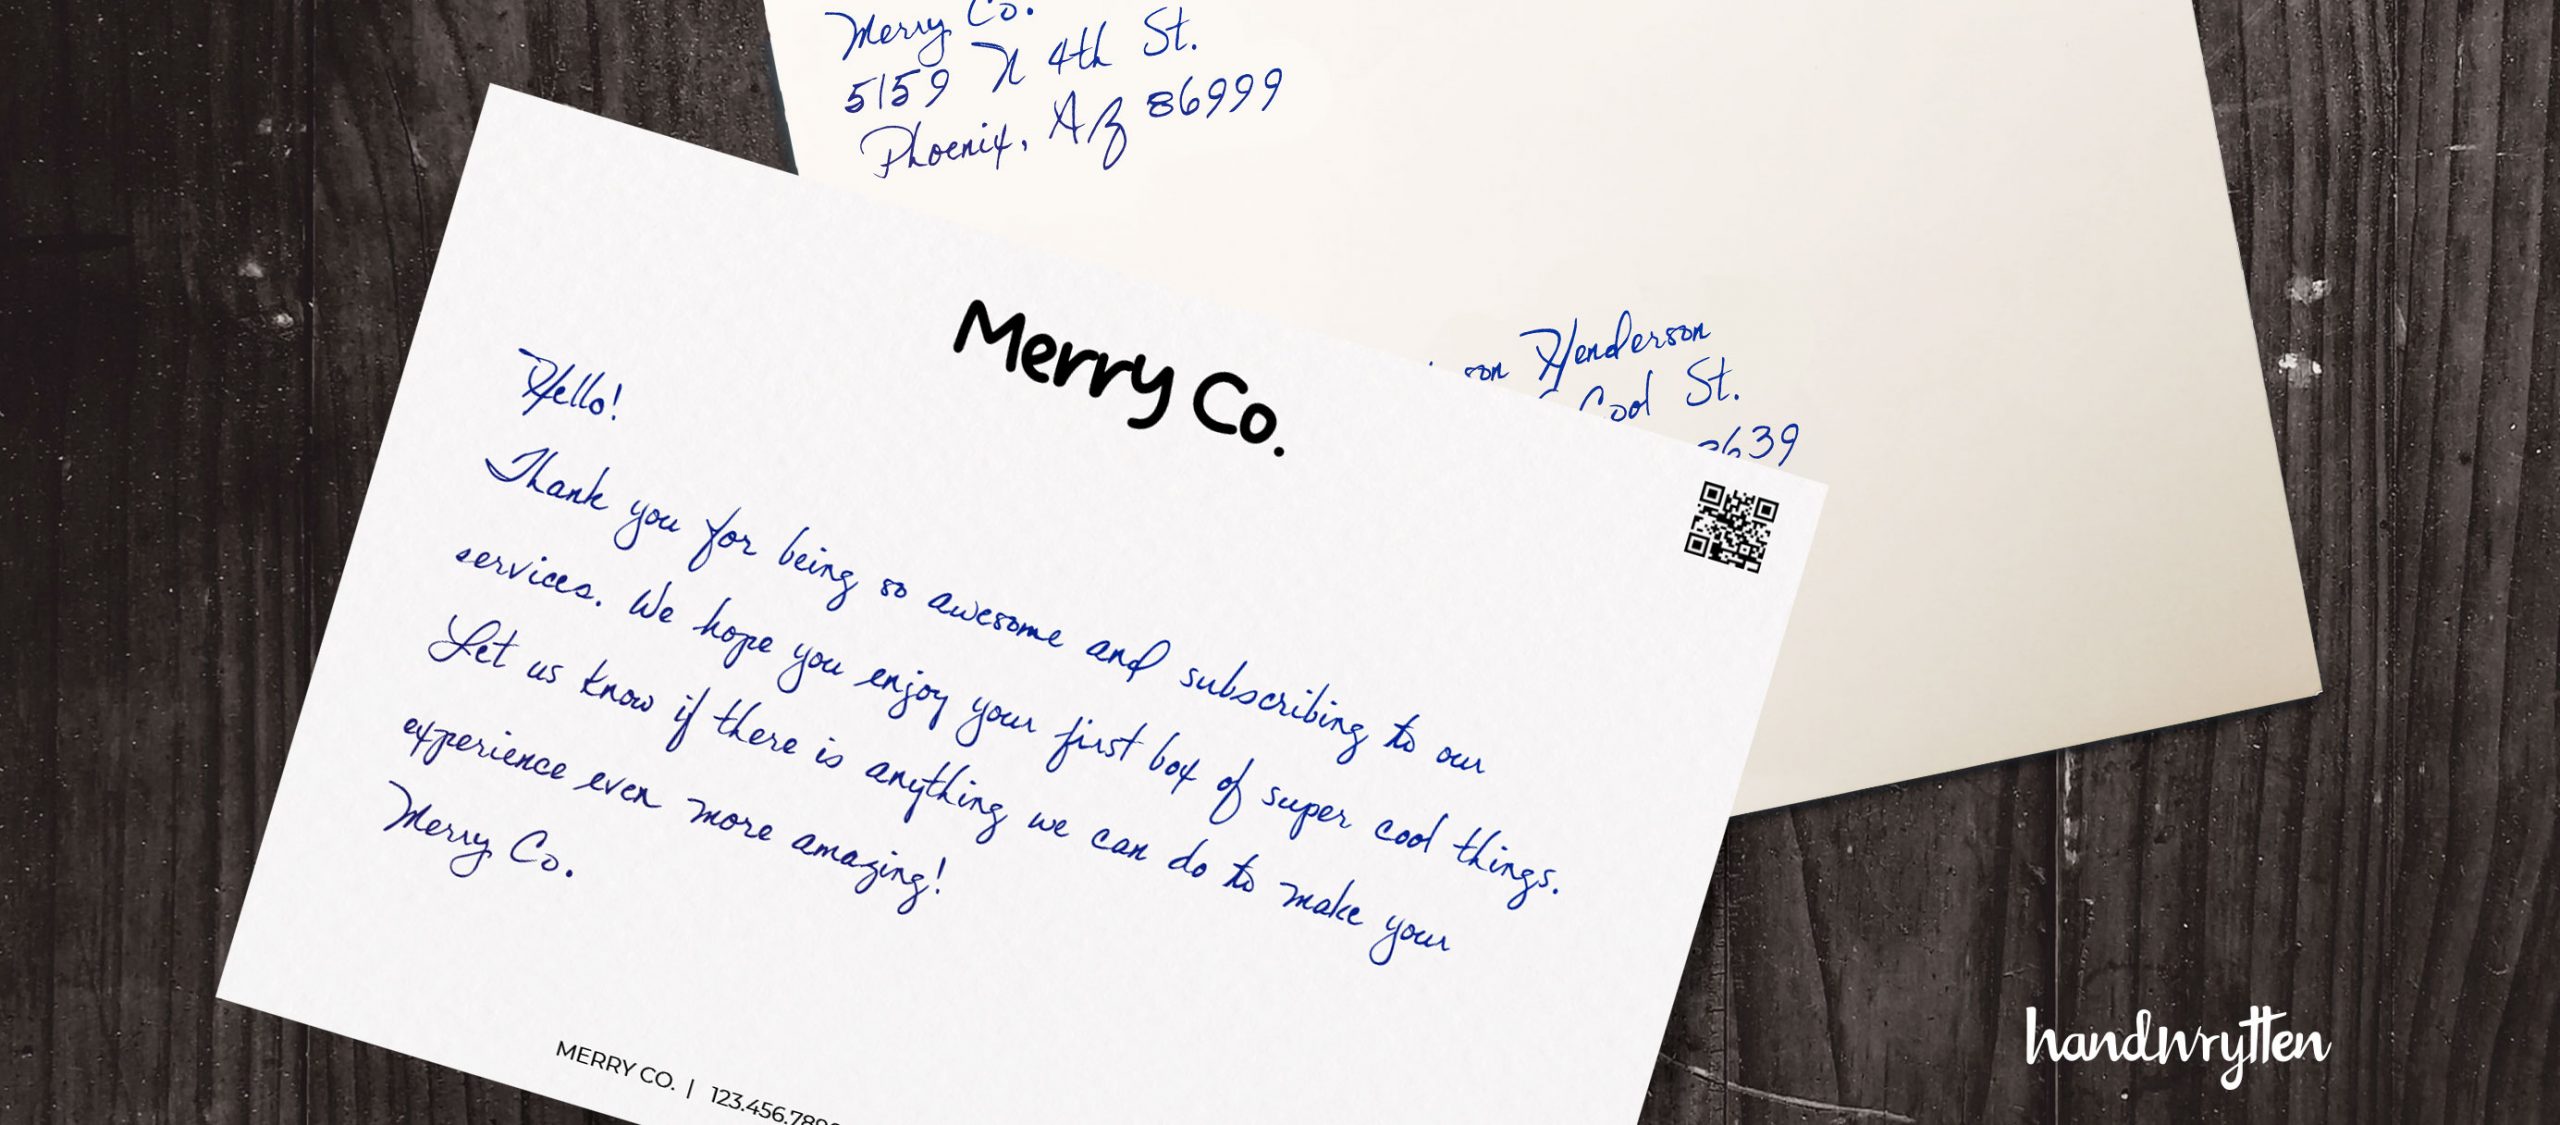 Merry Co.
5159 N 4th St.
Phoenix, AZ 86999
Henderson
Cool St.
Merry Co.
Hello!
Thank you for being so awesome and subscribing to our
services. We hope you enjoy your first box of super cool things.
Let us know if there is anything we can do to make your
experience even more amazing!
Merry Co.
MERRY CO. | 123.456.789
handwrytten